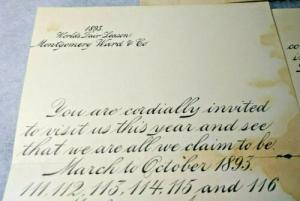 1893
World's Fair Season
Montgomery Ward & Co
You are cordially invited
to visit us this year and see
that we are all we claim to be.
March to October 1893.
111, 112, 113, 114, 115 and 116